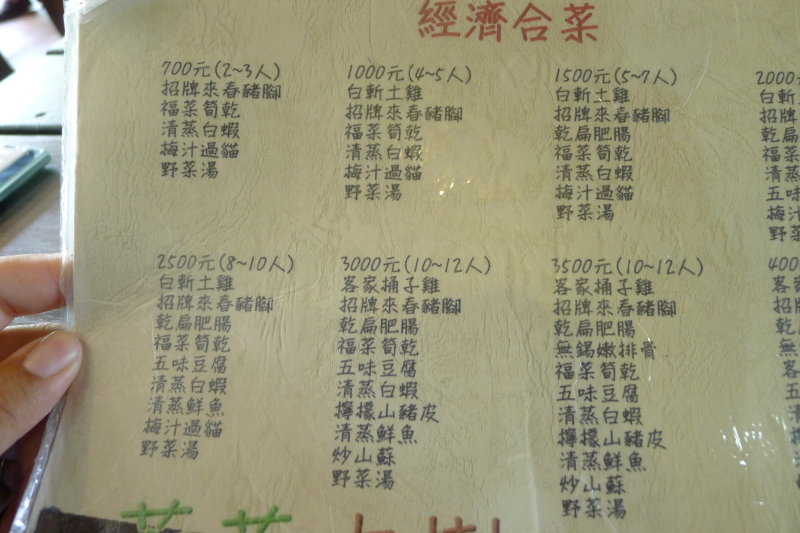 經濟合菜
700元(2~3人)
招牌來春豬腳
福菜筍乾
清蒸白蝦
梅汁過貓
野菜湯
1000元(4~5人)
白斬土雞
招牌來春豬腳
福菜筍乾
清蒸白蝦
梅汁過貓
野菜湯
1500元(5~7人)
白斬土雞
招牌來春豬腳
乾扁肥腸
福菜筍乾
清蒸白蝦
梅汁過貓
野菜湯
2000
白斬
招牌
乾扁
福菜
清蒸
五味
梅汁
野菜
2500元(8~10人)
白斬土雞
招牌來春豬腳
乾扁肥腸
福菜筍乾
五味豆腐
清蒸白蝦
清蒸鮮魚
梅汁過貓
野菜湯
3000元(10~12人)
客家桶子雞
招牌來春豬腳
乾扁肥腸
福菜筍乾
五味豆腐
清蒸白蝦
檸檬山豬皮
清蒸鮮魚
炒山蘇
野菜湯
3500元(10~12人)
客家桶子雞
招牌來春豬腳
乾扁肥腸
無錫嫩排骨
福菜筍乾
五味豆腐
清蒸白蝦
檸檬山豬皮
清蒸鮮魚
炒山蘇
野菜湯
400
客
招
乾
無
客
五
清
檸